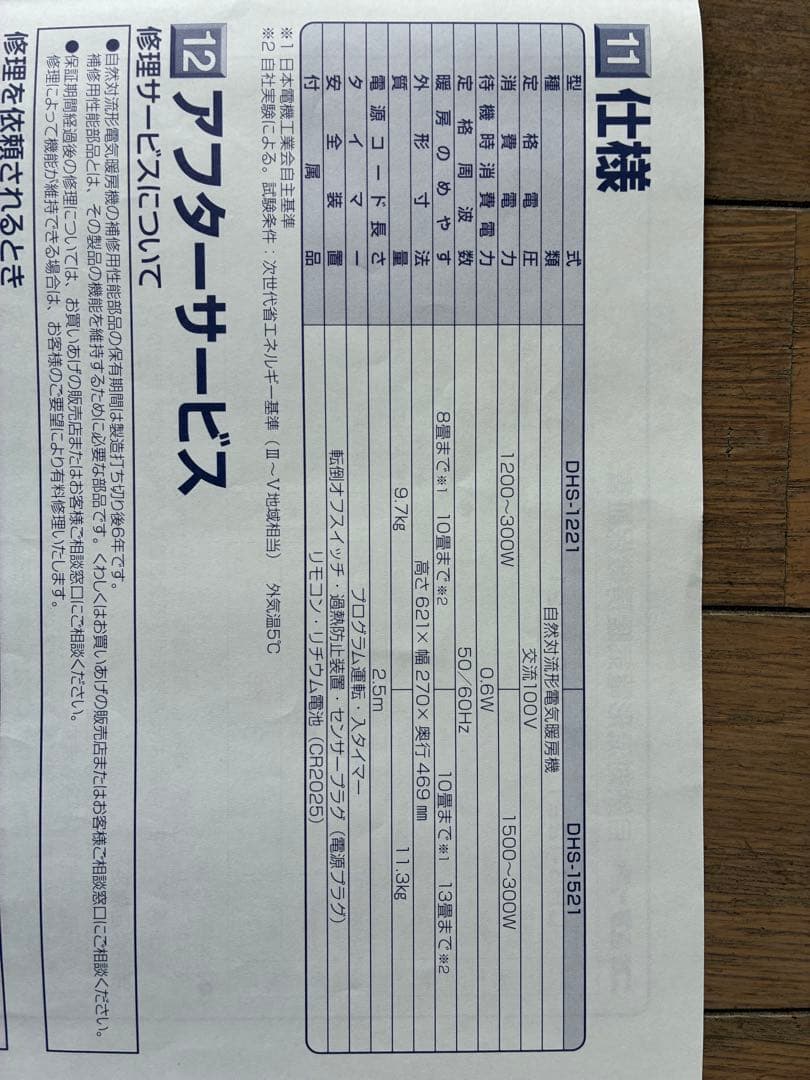 11 仕様
型式 DHS-1221 DHS-1521
種類 自然対流形電気暖房機
定格電圧 交流100V
消費電力 1200～300W 1500～300W
待機時消費電力 0.6W
定格周波数 50／60Hz
暖房のめやす 8畳まで※1 10畳まで※2 10畳まで※1 13畳まで※2
外形寸法 高さ621×幅270×奥行469㎜
質量 9.7kg 11.3kg
電源コード長さ 2.5m
タイマー プログラム運転・入タイマー
安全装置 転倒オフスイッチ・過熱防止装置・センサープラグ（電源プラグ）
付属品 リモコン・リチウム電池（CR2025）
※1 日本電機工業会自主基準
※2 自社実験による。試験条件：次世代省エネルギー基準（Ⅲ～Ⅴ地域相当） 外気温5℃
12 アフターサービス
修理サービスについて
●自然対流形電気暖房機の補修用性能部品の保有期間は製造打ち切り後6年です。
補修用性能部品とは、その製品の機能を維持するために必要な部品です。くわしくはお買いあげの販売店またはお客様ご相談窓口にご相談ください。
●保証期間経過後の修理については、お買いあげの販売店またはお客様ご相談窓口にご相談ください。
修理によって機能が維持できる場合は、お客様のご要望により有料修理いたします。
修理を依頼されるとき